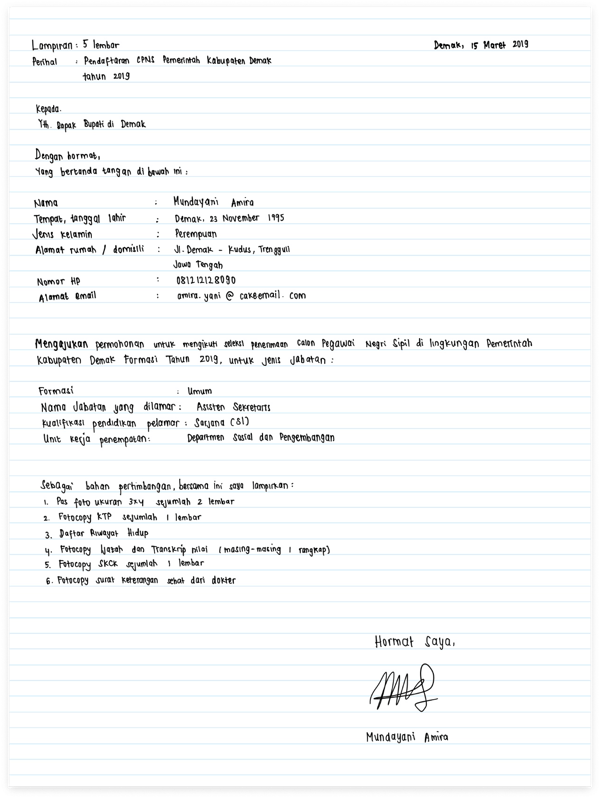 Lampiran : 5 lembar
Demak, 15 Maret 2019
Perihal : Pendaftaran CPNS Pemerintah Kabupaten Demak
tahun 2019
Kepada.
Yth. Bapak Bupati di Demak
Dengan hormat,
Yang bertanda tangan di bawah ini :
Nama : Mundayani Amira
Tempat, tanggal lahir : Demak, 23 November 1995
Jenis kelamin : Perempuan
Alamat rumah / domisili : Jl. Demak - Kudus, Trengguli
Jawa Tengah
Nomor HP : 081212128090
Alamat email : amira.yani @ cakeemail. com
Mengajukan permohonan untuk mengikuti seleksi penerimaan Calon Pegawai Negri Sipil di lingkungan Pemerintah
Kabupaten Demak Formasi Tahun 2019, untuk jenis Jabatan :
Formasi : Umum
Nama Jabatan yang dilamar : Asisten Sekretaris
Kualifikasi pendidikan pelamar : Sarjana (S1)
Unit kerja penempatan: Departmen Sosial dan Pengembangan
Sebagai bahan pertimbangan, bersama ini saya lampirkan :
1. Pas foto ukuran 3x4 sejumlah 2 lembar
2. Fotocopy KTP sejumlah 1 lembar
3. Daftar Riwayat Hidup
4. Fotocopy Ijazah dan Transkrip nilai (masing-masing 1 rangkap)
5. Fotocopy SKCK sejumlah 1 lembar
6. Fotocopy surat keterangan sehat dari dokter
Hormat Saya,
Mundayani Amira